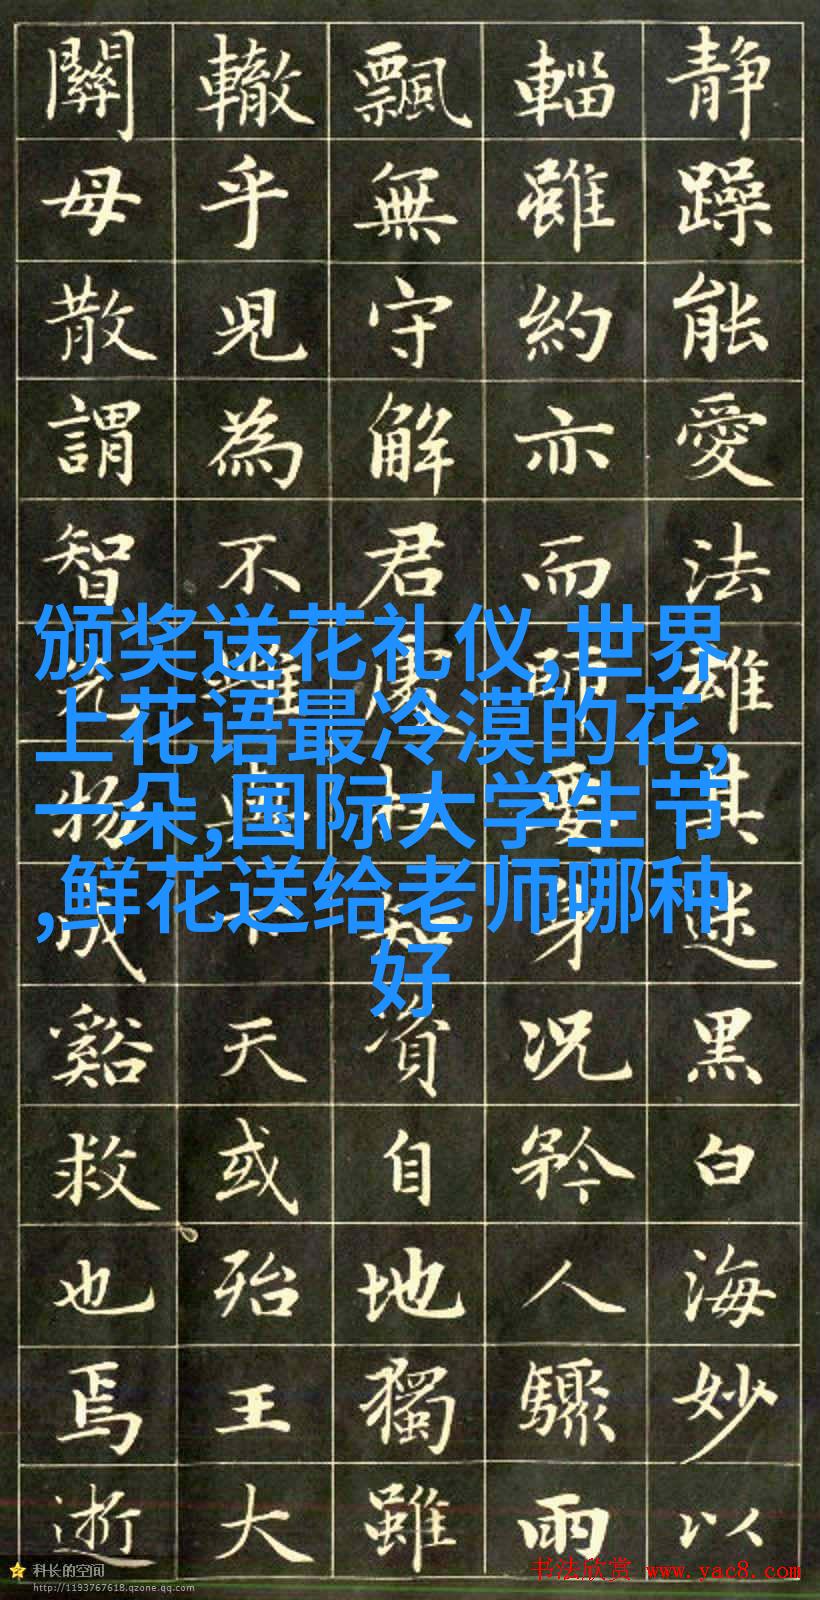 靜躁能愛法雄其迷黑白海妙以
輜雖約亦而師要身況矜人驟雨
飄無守解君知資自地獨雖
轍乎見為不與天或殆王大
關毋散謂智物成谿救也焉逝
颁奖送花礼仪,世界
上花语最冷漠的花,
一朵,国际大学生节
,鲜花送给老师哪种
好
科长的空间
http://1193767618.qzone.qq.com
书法欣赏 www.yac8.com